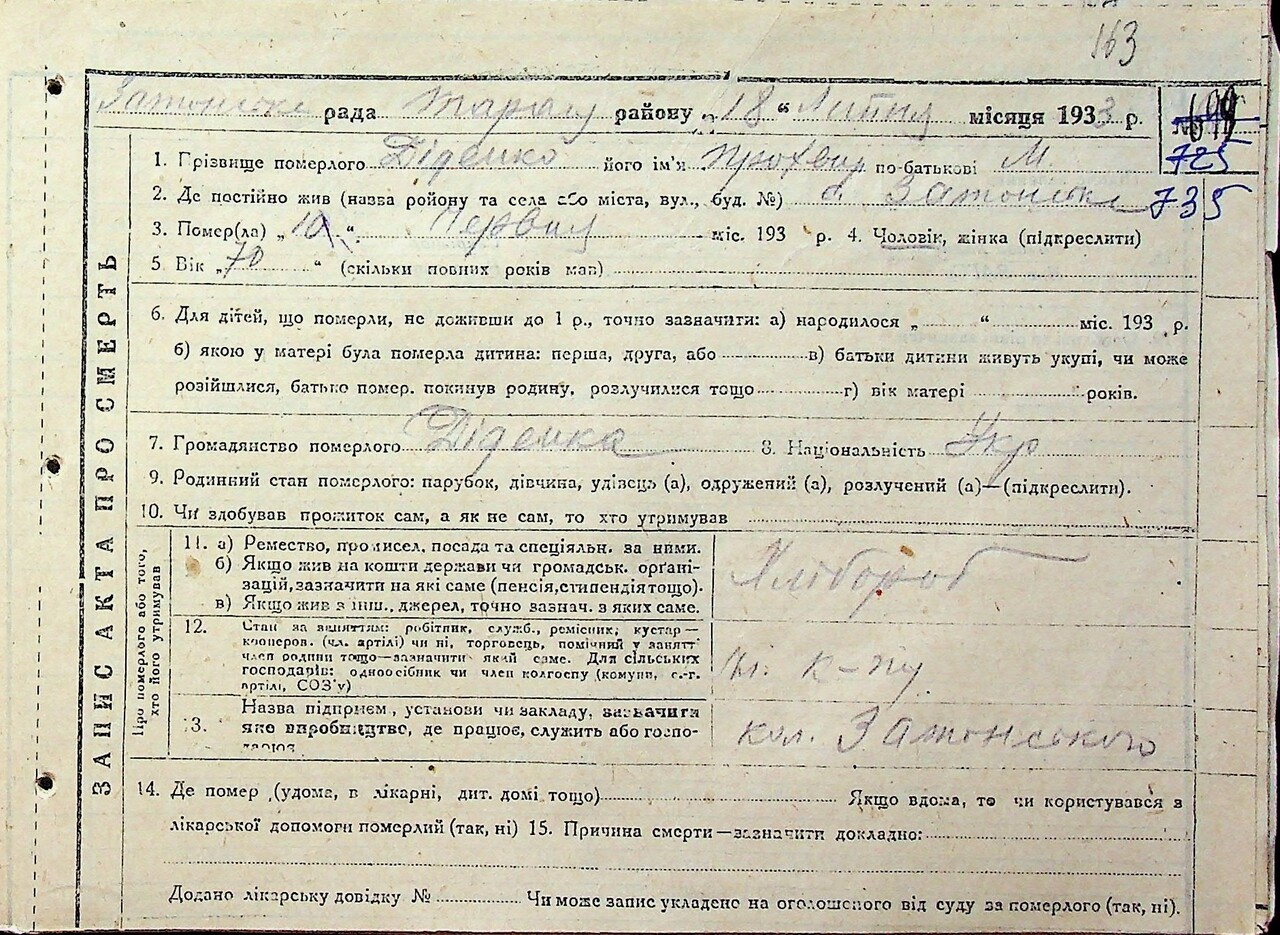 163
Затонське рада Таращ району „18“ Липня місяця 1933 р.
725
735
1. Грізвище померлого Діденко його ім'я Прохвир по-батькові М.
2. Де постійно жив (назва району та села або міста, вул., буд. №) с. Затонське
3. Помер(ла) „10“ Червня міс. 193 р. 4. Чоловік, жінка (підкреслити)
5 Вік „70“ (скільки повних років мав)
6. Для дітей, що померли, не доживши до 1 р., точно зазначити: а) народилося „ “ міс. 193 р.
б) якою у матері була померла дитина: перша, друга, або в) батьки дитини живуть укупі, чи може
розійшлися, батько помер. покинув родину, розлучилися тощо г) вік матері років.
7. Громадянство померлого Діденка 8. Національність Укр
9. Родинний стан померлого: парубок, дівчина, удівець (а), одружений (а), розлучений (а)—(підкреслити).
10. Чи здобував прожиток сам, а як не сам, то хто утримував
ЗАПИС АКТА ПРО СМЕРТЬ
Про померлого або того,
хто його утримував
11. а) Ремество, промисел, посада та спеціяльн. за ними.
б) Якщо жив на кошти держави чи громадськ. орґані-
зацій, зазначити на які саме (пенсія, стипендія тощо).
в) Якщо жив з інш., джерел, точно зазнач. з яких саме.
Хлібороб
12. Стан за заняттям: робітник, служб., ремісник, кустар—
кооперов. (чл. артілі) чи ні, торговець, помічний у занятті
член родини тощо—зазначити який саме. Для сільських
господарів: одноосібник чи член колгоспу (комуни, с.-г.
артілі, СОЗ'у)
чл. к-пу
13. Назва підприєм, установи чи закладу, зазначити
яке виробництво, де працює, служить або госпо-
дарює
кол. Затонського
14. Де помер (удома, в лікарні, дит. домі тощо) Якщо вдома, то чи користувався з
лікарської допомоги померлий (так, ні) 15. Причина смерти—зазначити докладно:
Додано лікарську довідку № Чи може запис укладено на оголошеного від суду за померлого (так, ні).